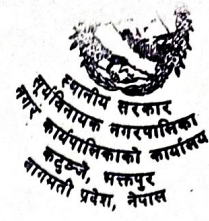 स्थानीय सरकार
सूर्यविनायक नगरपालिका
नगर कार्यपालिकाको कार्यालय
कटुञ्जे, भक्तपुर
बागमती प्रदेश, नेपाल